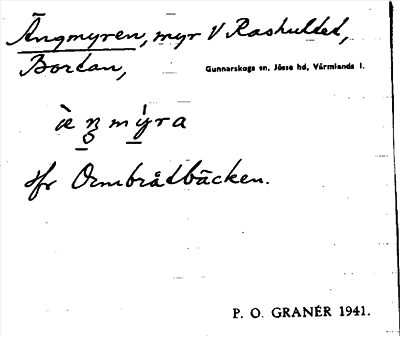 Ängmyren, myr V Rashultet,
Bortan,
Gunnarskogs sn, Jösse hd, Värmlands l.
jfr Ormbråtbäcken.
P. O. GRANÉR 1941.